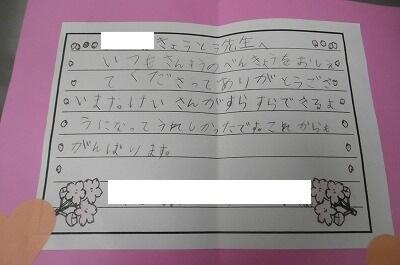 きょうとう先生へ
いつもさんすうのべんきょうをおしえ
てくださってありがとうござ
います。けいさんがすらすらできるよ
うになってうれしかったです。これからも
がんばります。